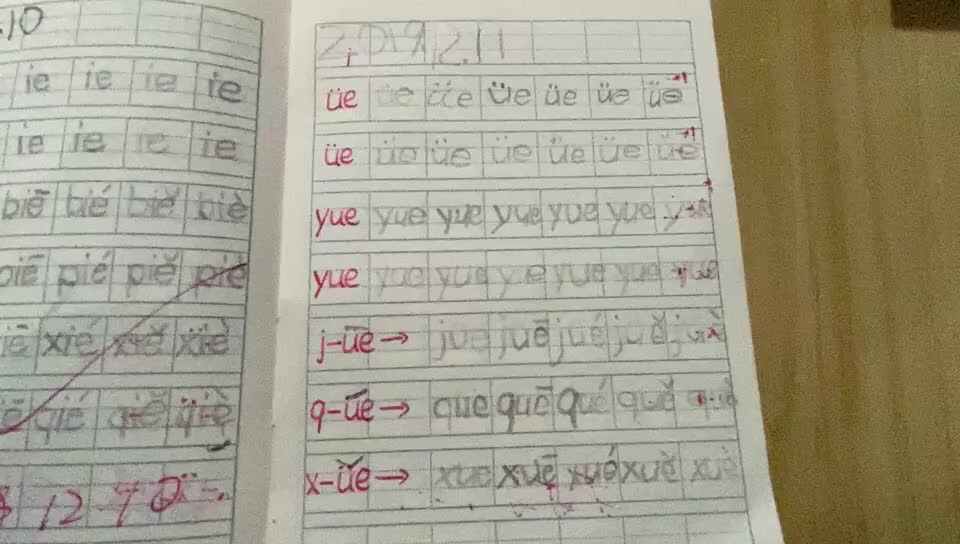 .10
ie ie ie ie
ie ie ie ie
biē bié biě biè
piē pié piě piè
iē xié xiě xiè
ē qié qiě qiè
12
2019.12.11
üe üe üe üe üe üe üe
üe üe üe üe üe üe üe
yue yue yue yue yue yue
yue yue yue yue yue yue yue
j-üē→ jue juē jué juě juè
q-üē→ que quē qué quě què
x-üě→ xue xuē xué xuě xuè